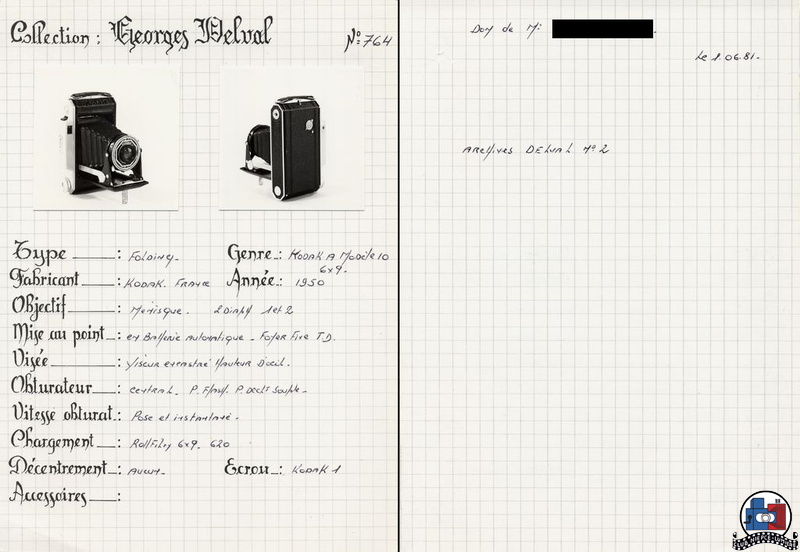 Collection : Georges Delval
N° 764
Type : Folding.
Genre : KODAK A Modèle 10
6x9.
Fabricant : KODAK. FRANCE
Année : 1950
Objectif : Menisque. 2 Diaph 1 et 2
Mise au point : en Batterie automatique - Foyer Fixe T.D.
Visée : Viseur encastré Hauteur D'oeil.
Obturateur : central. P. Flash. P. Decl^t Souple.
Vitesse obturat. : Pose et instantané.
Chargement : RollFilm 6x9. 620
Décentrement : Aucun.
Ecrou : KODAK 1
Accessoires :
Don de Mr
Le 1.06.81.
Archives DELVAL N° 2